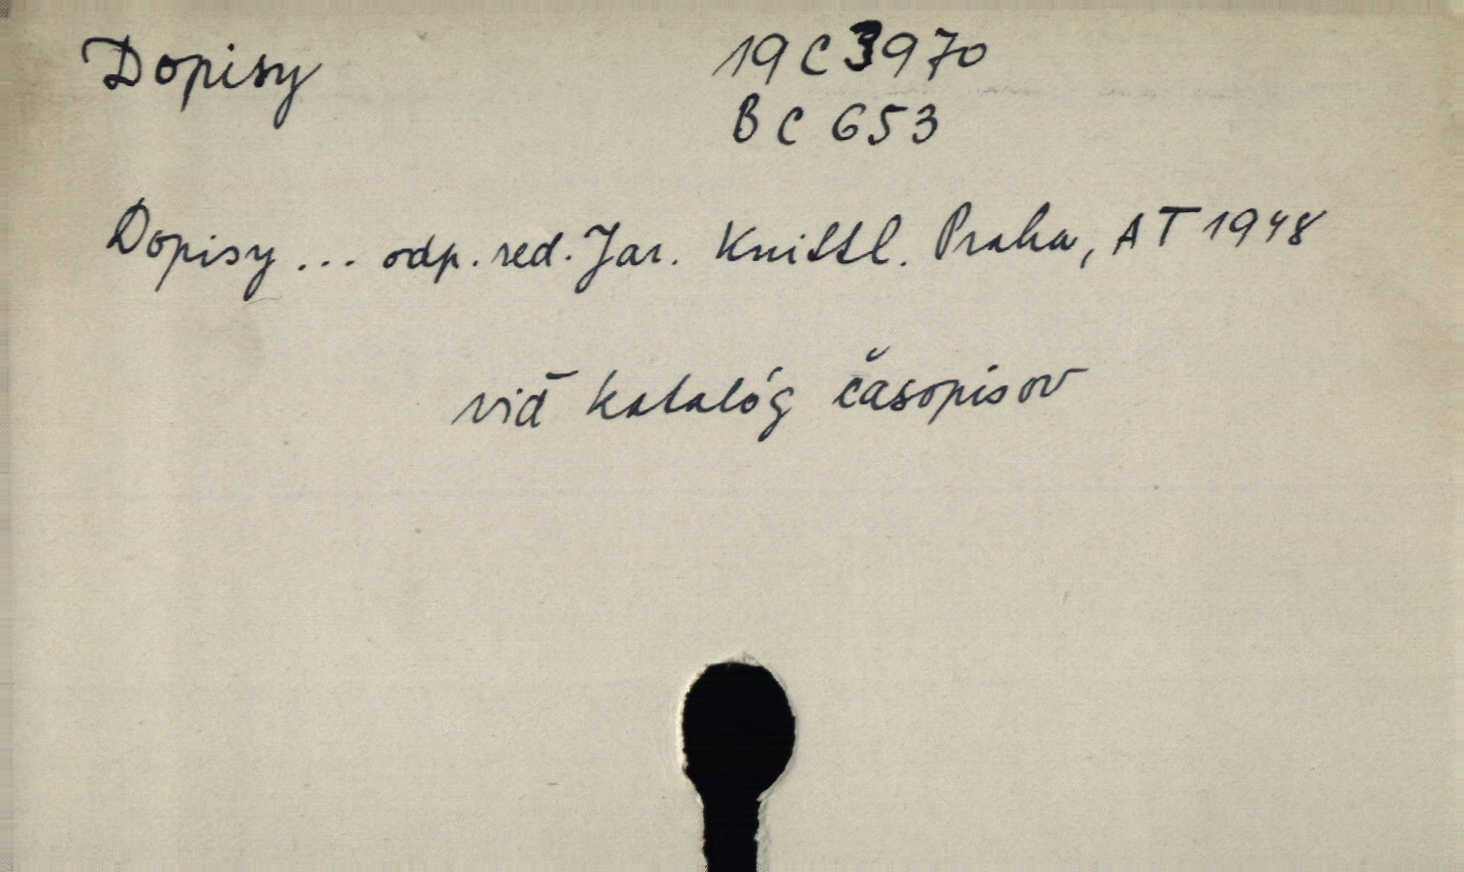 Dopisy
19 C 3970
BC 653
Dopisy... odp. red. Jar. Knittl. Praha, AT 1948
viď katalóg časopisov